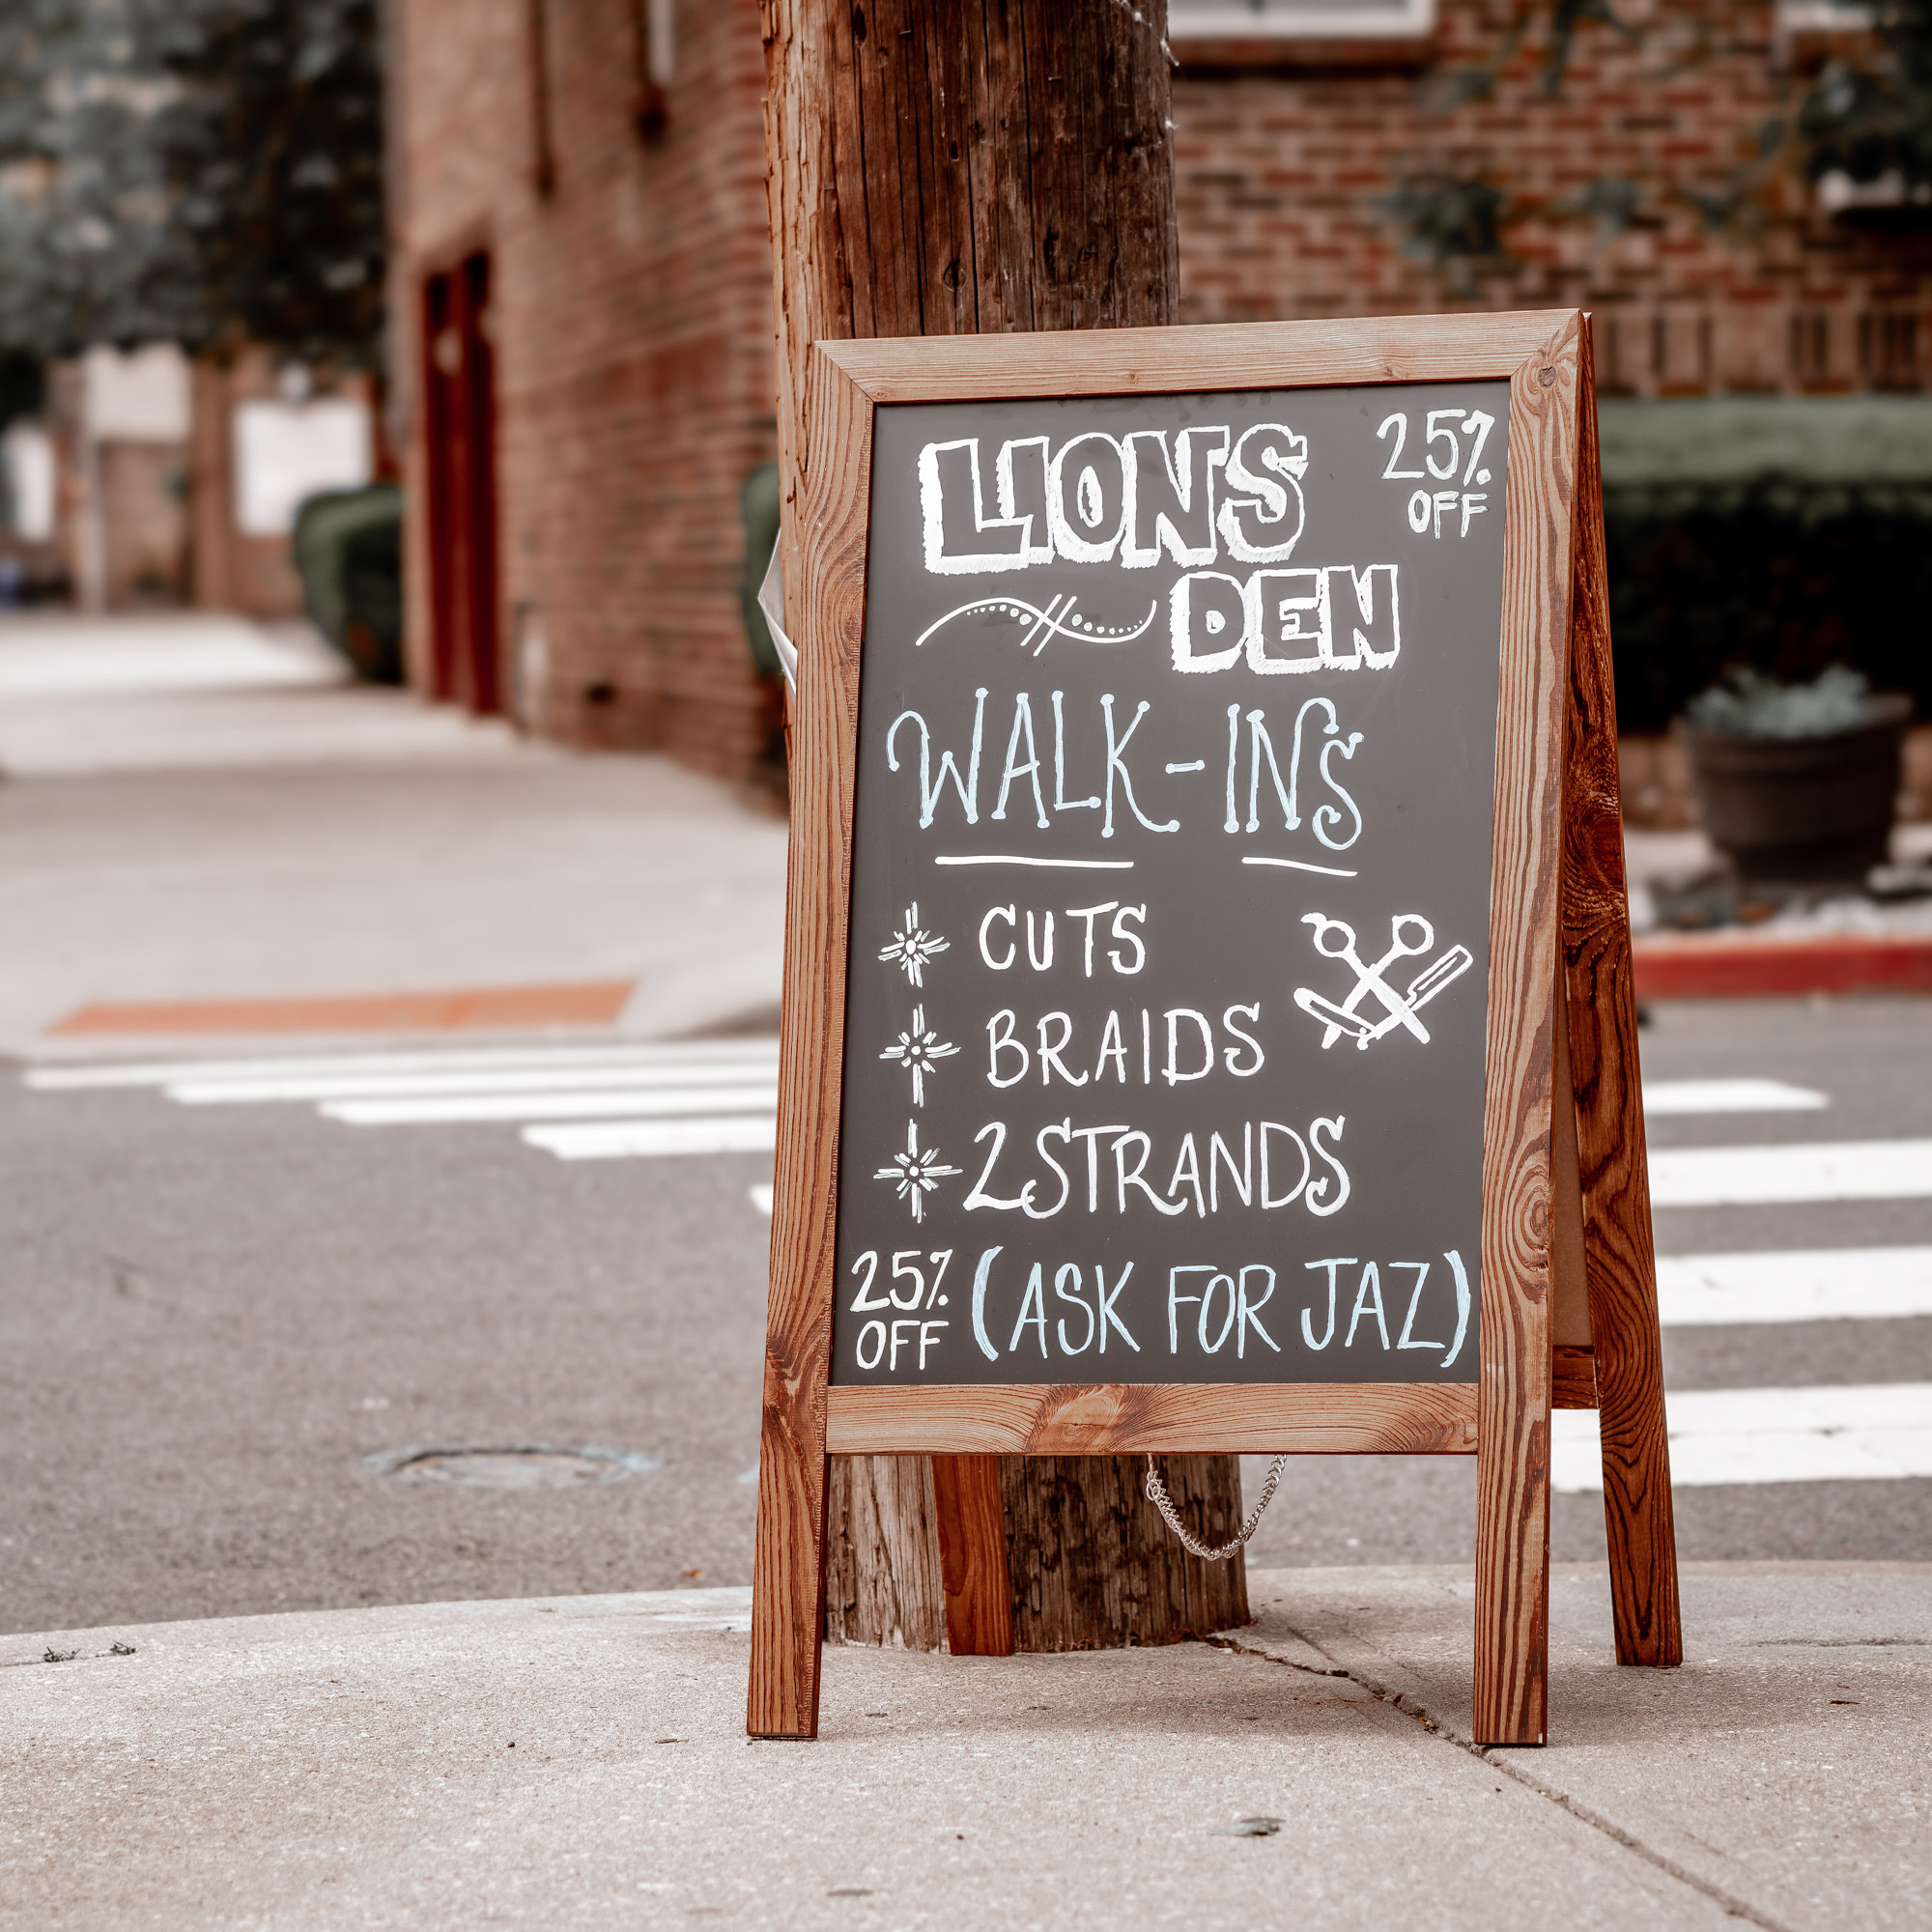 LIONS
DEN
25%
OFF
WALK-INS
CUTS
BRAIDS
2STRANDS
25%
OFF
(ASK FOR JAZ)